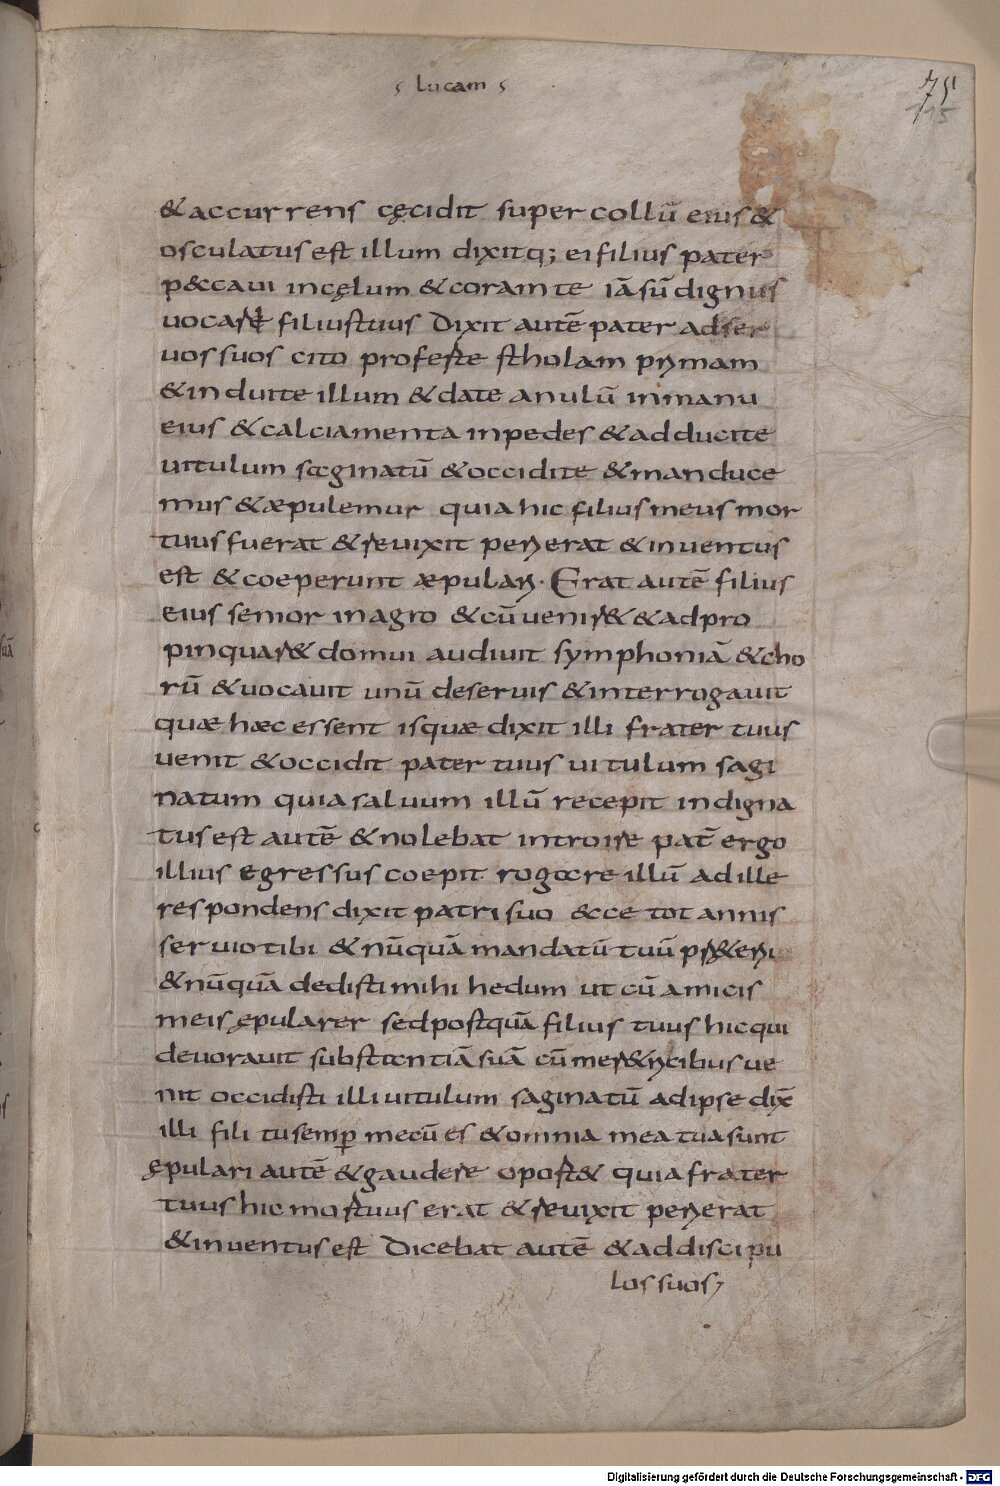 lucam
75
115
& accurrens cęcidit super collū eius &
osculatus est illum dixitq; ei filius pater
p&caui in cęlum & coram te iā sū dignus
uocare filius tuus Dixit autē pater ad ser
uos suos cito proferte stholam primam
& induite illum & date anulū in manu
eius & calciamenta in pedes & adducite
uitulum saginatū & occidite & manduce
mus & æpulemur quia hic filius meus mor
tuus fuerat & reuixit perierat & inuentus
est & coeperunt æpulari· Erat autē filius
eius senior in agro & cū uenir& & adpro
pinquar& domui audiuit symphoniā & cho
rū & uocauit unū de seruis & interrogauit
quæ hæc essent isquæ dixit illi frater tuus
uenit & occidit pater tuus uitulum sagi
natum quia saluum illū recepit indigna
tus est autē & nolebat introire pat̄ ergo
illius egressus coepit rogare illū ad ille
respondens dixit patri suo &ce tot annis
seruio tibi & nūquā mandatū tuū pr&erii
& nūquā dedisti mihi hedum ut cū amicis
meis ępularer sed postquā filius tuus hic qui
deuorauit substantiā suā cū mer&ricibus ue
nit occidisti illi uitulum saginatū ad ipse dix̄
illi fili tu semꝑ mecū es & omnia mea tua sunt
ępulari autē & gaudere oport& quia frater
tuus hic mortuus erat & reuixit perierat
& inuentus est Dicebat autē & ad discipu
los suos
suā
Digitalisierung gefördert durch die Deutsche Forschungsgemeinschaft - DFG